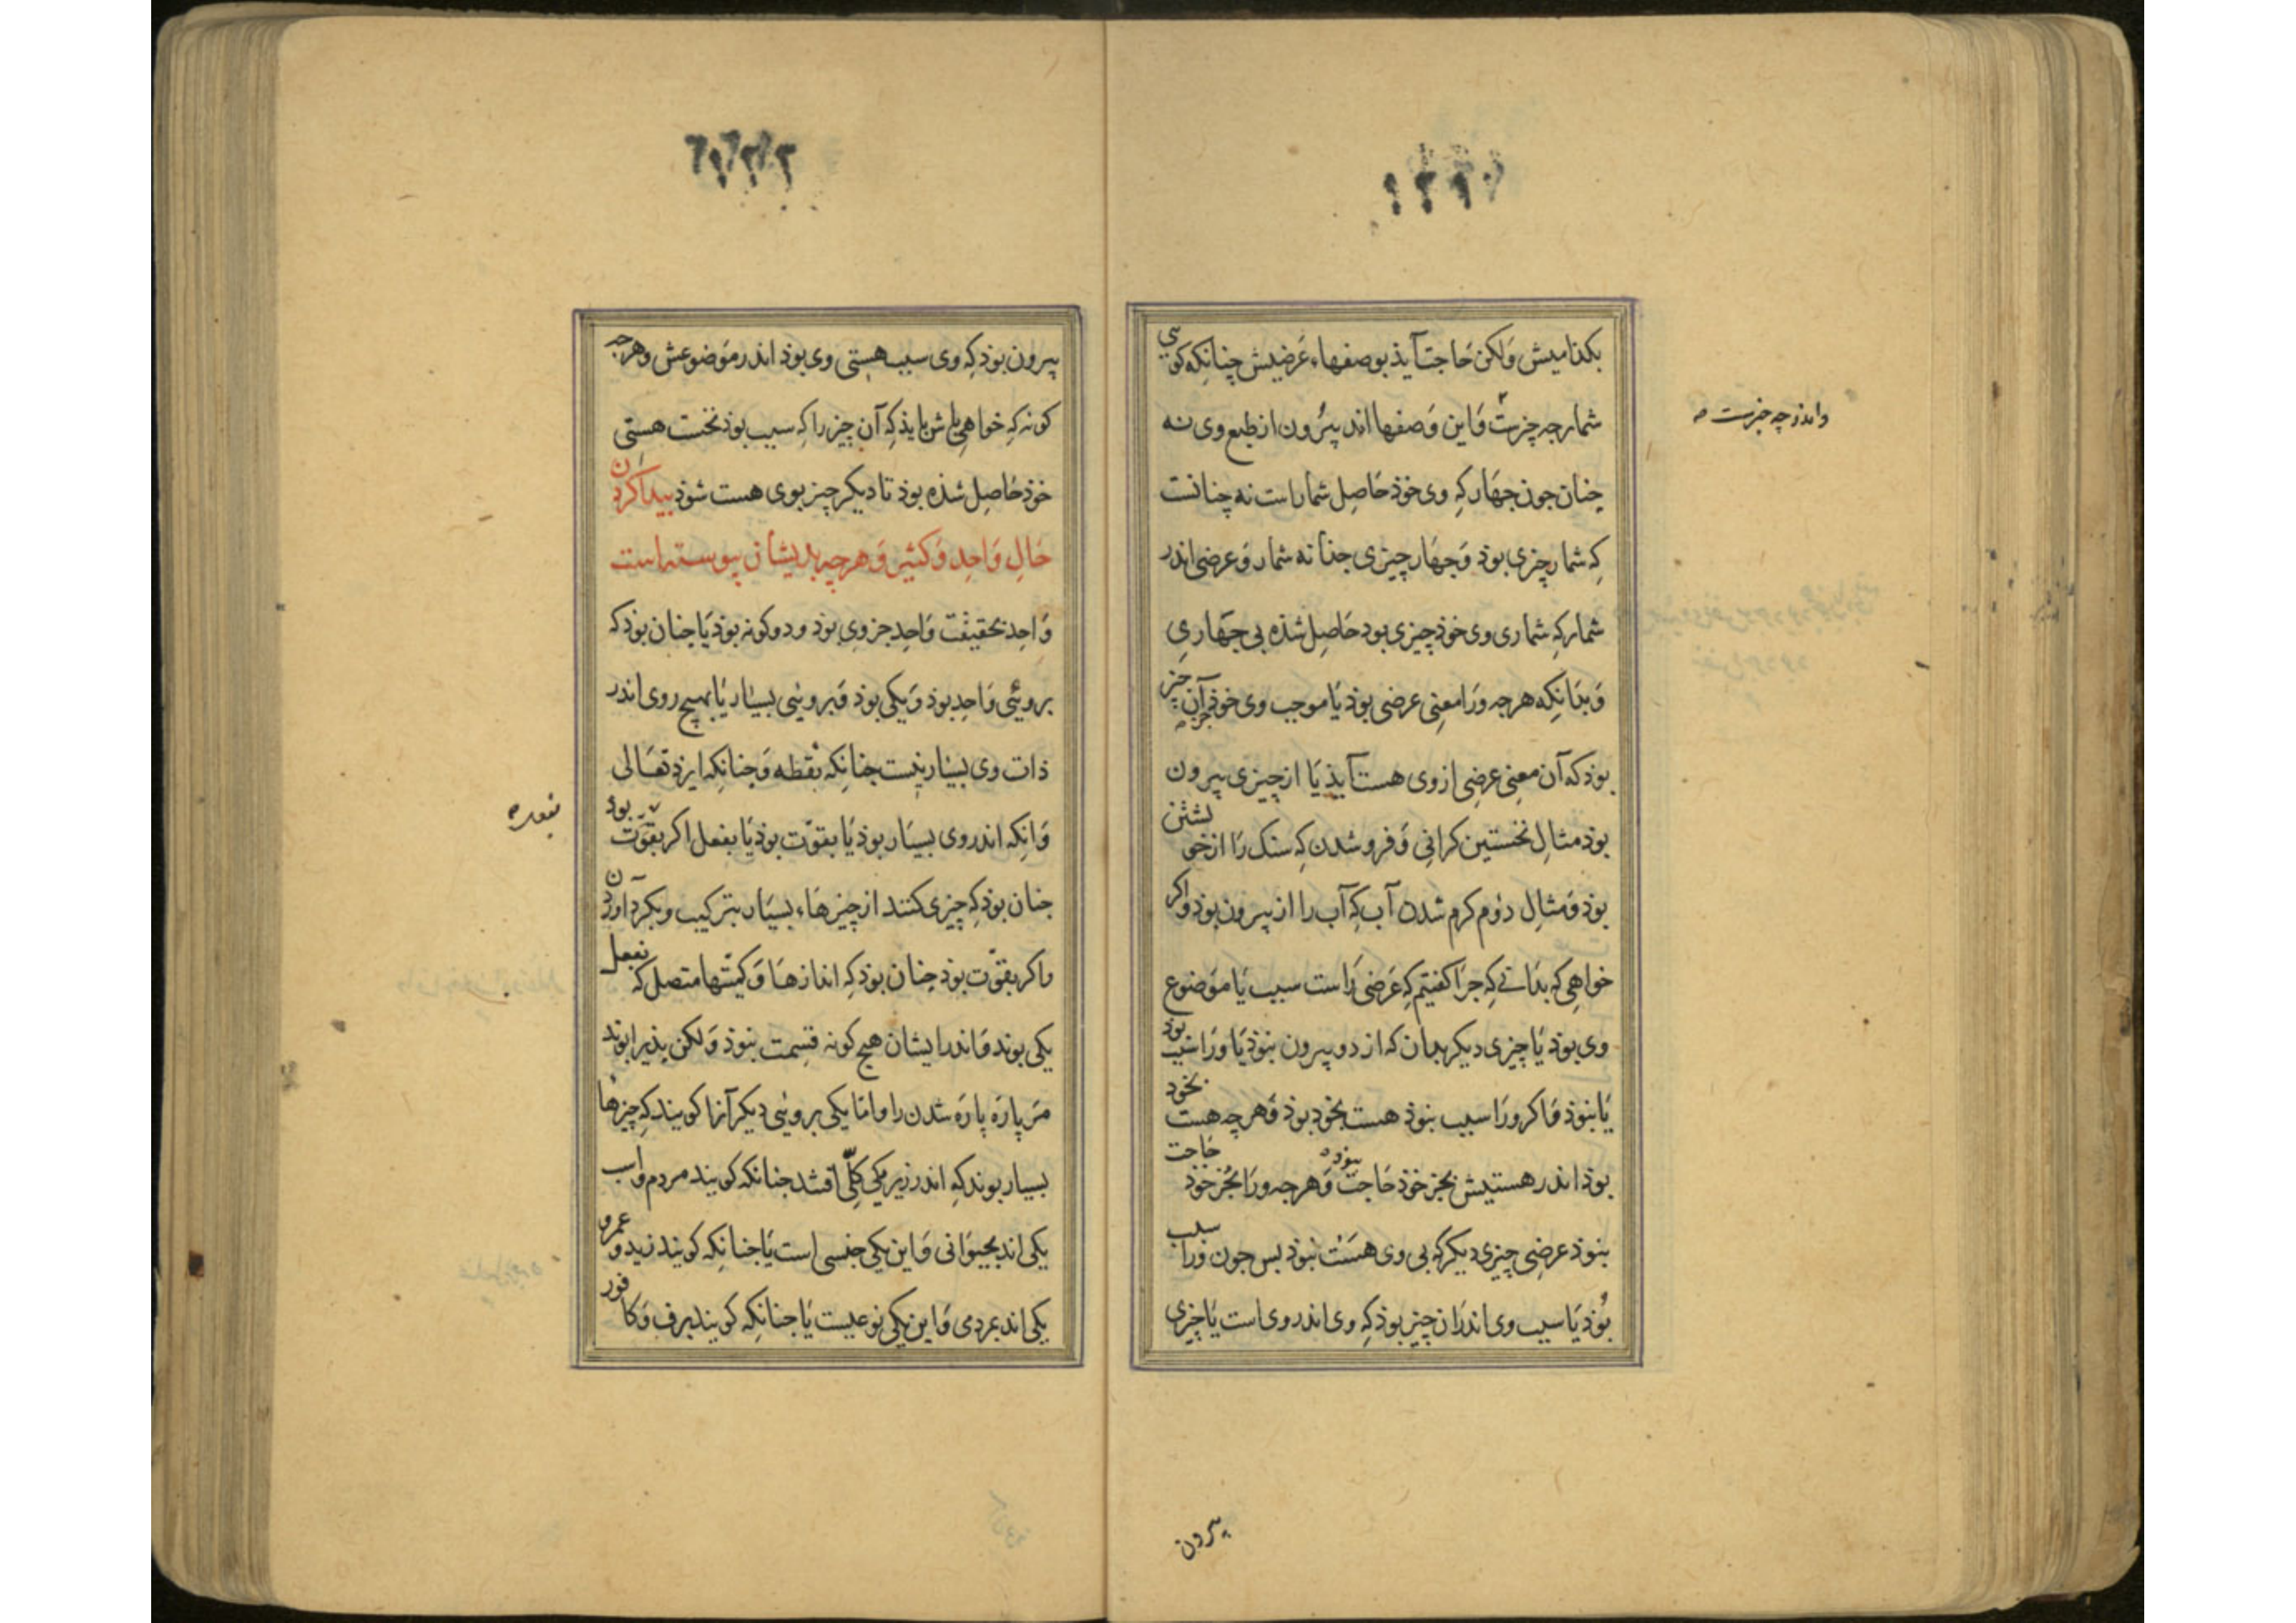 بکذامیش وَلکن حَاجت آیذ بوصفهاء عَرضیش چنانکه کویی
شمار چه چیزست وَاین وَصفها اند بیرون از طبع وی نه
چنان جون جهَار که وی خوذ حَاصِل شمار است نه چنانست
کِه شمار چیزی بوذ وَجهَار چیزی جذا نه شمار وَ عرضی اندر
شمار که شماری وی خوذ چیزی بوذ حَاصِل شذه بی جهَاری
وَبدَانکه هرچه وَرا معنِی عرضی بوذ یَا موجب وی خوذ آن چیز
بوذ که آن معنِی عرضِی از وی هست آیذ یَا از چیزی بیرون
بوذ مثالِ نخستین کرانِی وَ فرو شدن کِه سنک رَا از خویشتن
بوذ وَ مثالِ دوُم کرم شدن آب کِه آب را از بیرون بوذ وا کر
خواهِی که بدَانی کِه جرَا کفتیم کِه عَرضی رَاست سبب یَا موَضوع
وی بوذ یَا چیزی دیکر بدان که از دو بیرون نبوذ یَا وَرا سبب بوذ
یَا نبوذ وَاکر ورَا سبب نبوذ هست بخوذ بوذ وَهرچه هست بخود
بوذ اندر هستیش بجز خوذ حَاجت نبوذ وَهرچه ورَا بجُز خوذ حَاجت
بنوذ عرضِی چیزی دیکر که بی وی هسَت نبوذ بس جون وَرا سبب
بُوذ یَا سبب وی اندرَان چیز بوذ کِه وی اندر وی است یَا چیزی
واندر چه چیزست
بیرون
بیرون بوذ کِه وی سبب هستِی وی بوذ اندر موَضوعش وهرچه
کونه کِه خواهِی باش بایذ کِه آن چیز را کِه سبب بوذ نخست هستِی
خوذ حَاصِل شذه بوذ تا دیکر چیز بوی هست شوذ بیدا کردن
حَالِ وَاحِد وَ کثیر وَ هرچه بذیشان بیوسته است
وَاحِد بحقیقت وَاحِد جزوِی بوذ و دو کونه بوذ یَا جنان بوذ که
برویُی وَاحِد بوذ وَیکی بوذ وَبرویُی بسیَار یَا بهیچ روی اندر
ذات وی بسیَار نیست جنانکه نُقطه وَجنانکِه ایزد تعَالی
وَانِکه اندر وی بسیَار بوذ یَا بقوّت بوذ یَا بفعل اکر بقوَّت بود
جنان بوذ کِه چیزی کنند از چیزهَاء بسیَار بترکیب و بکرد آوردن
واکر بقوّت بوذ چنان بوذ کِه اندازهَا وَ کمیّتها متصل که بفعل
یکی بوند وَاندر ایشان هیج کونه قسِمت نبوذ وَلکن بذیرا بوند
مَر پاره پاره شدن را وامّا یکی برویُی دیکر آنرا کویند کِه چیزهَا
بسیار بوند کِه اندر زیر یکی کلّی افتند جنانکه کویند مردم واسب
یکی اند بحیوَانی وَاین یکی جنسی است یَا جنانکِه کویند زید وعمرو
یکی اند بمردمی وَاین یکی نوعیست یَا جنانکِه کویند برف وَکافور